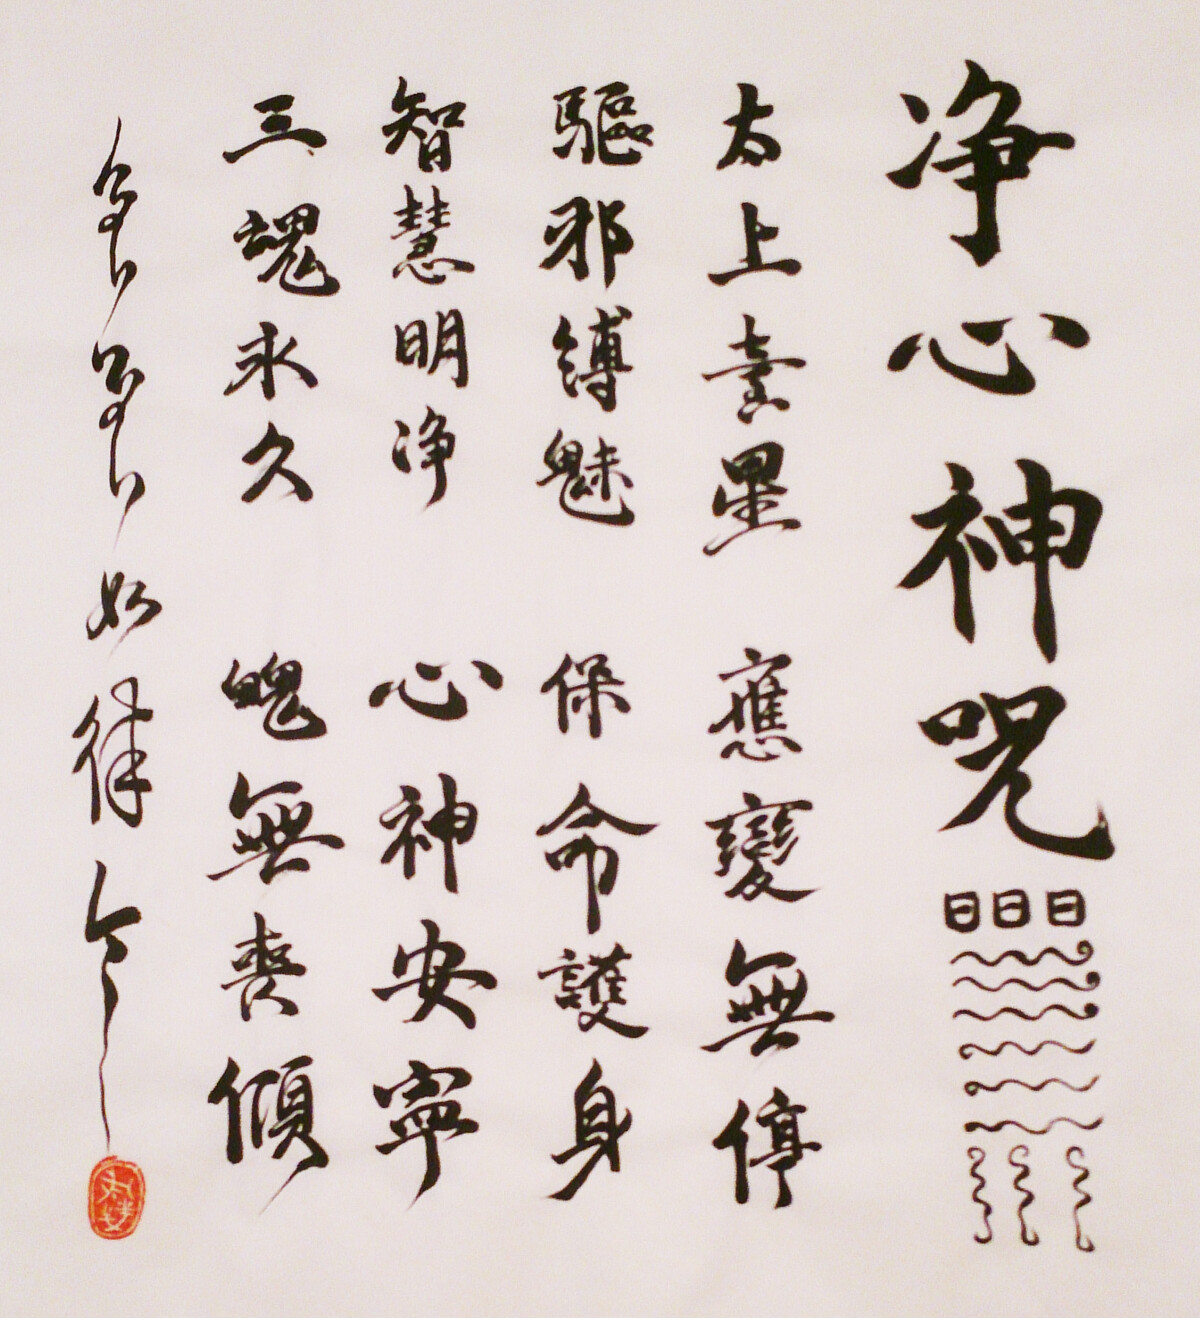 净心神咒
日日日
太上臺星 應變無停
驅邪縛魅 保命護身
智慧明净 心神安寧
三魂永久 魄無喪傾
急急如律令